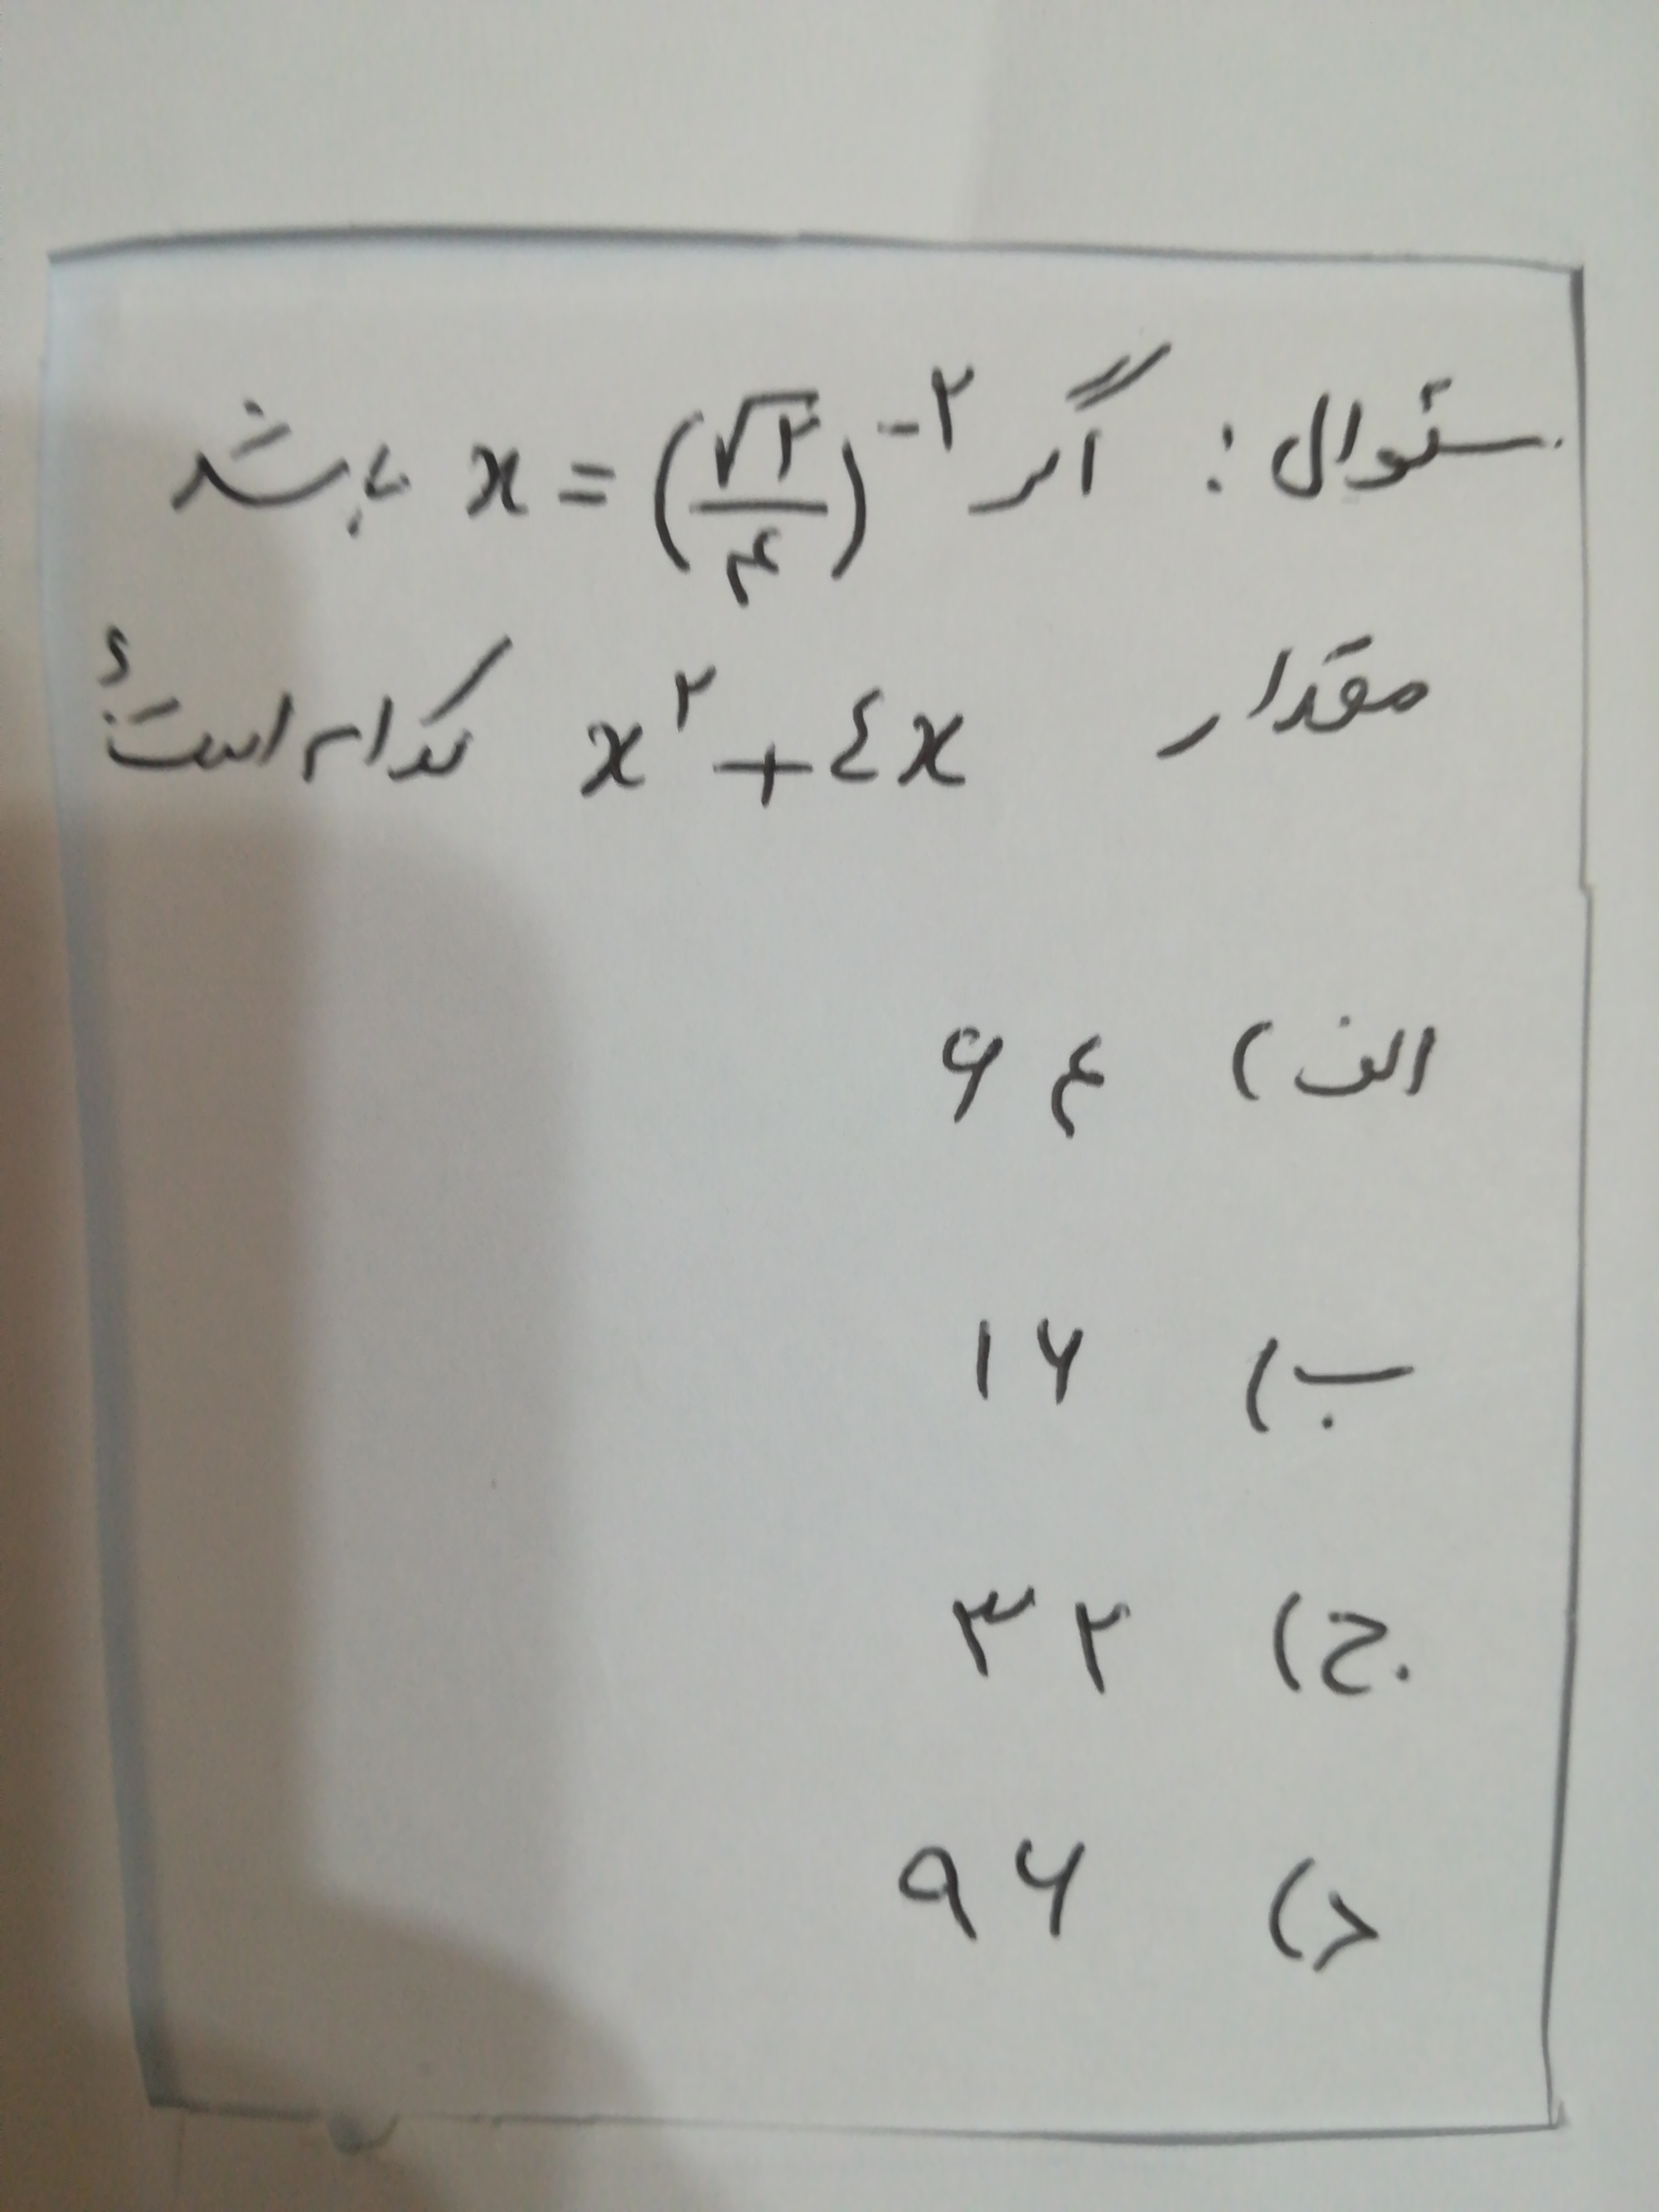 سئوال: اگر x = (√۲/۴)^-۲ باشد
مقدار x^۲ + ٤x کدام است؟
الف) ۶۴
ب) ۱۶
ج) ۳۲
د) ۹۶